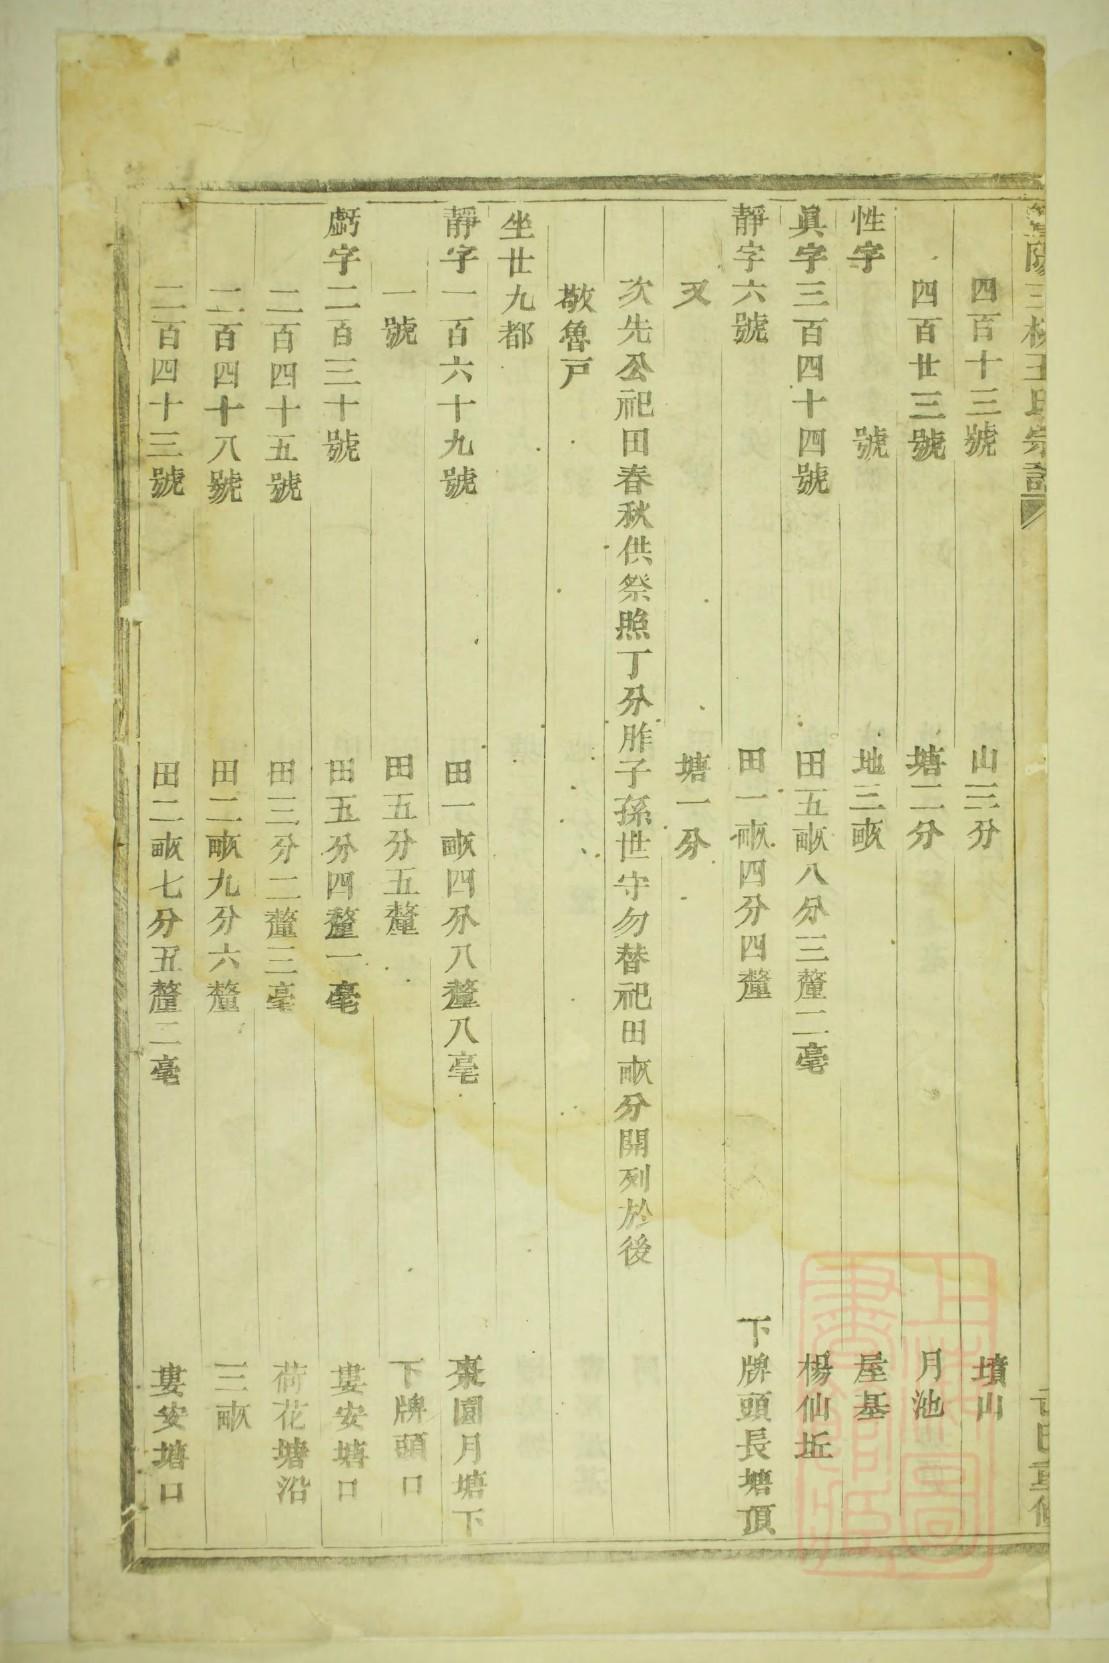 王氏宗譜
四百十三號 山三分 墳山
四百廿三號 塘二分 月池
性字 號 地三畝 屋基
眞字三百四十四號 田五畝八分三釐二毫 楊仙坵
靜字六號 田一畝四分四釐 下牌頭長塘頂
又 塘一分
次先公祀田春秋供祭照丁分胙子孫世守勿替祀田畝分開列於後
敬魯戸
坐廿九都
靜字一百六十九號 田一畝四分八釐八毫 棗園月塘下
一號 田五分五釐 下牌頭口
虧字二百三十號 田五分四釐一毫 婁安塘口
二百四十五號 田三分二釐三毫 荷花塘沿
二百四十八號 田二畝九分六釐 三畝
二百四十三號 田二畝七分五釐二毫 婁安塘口